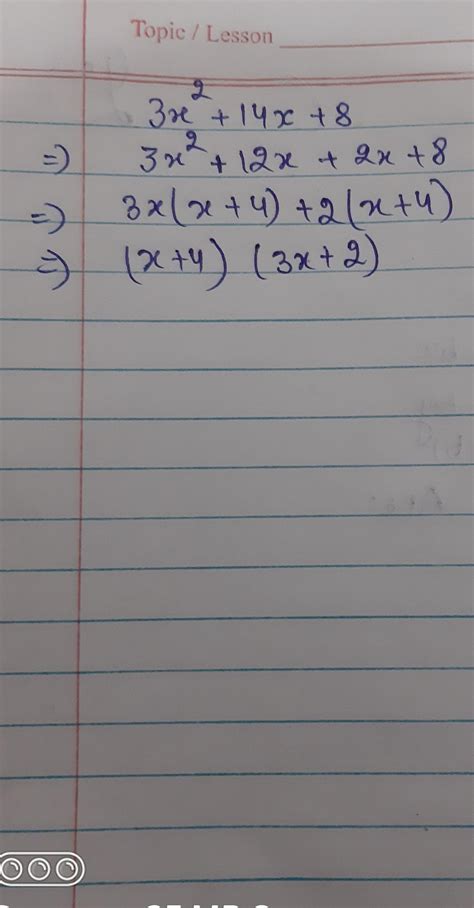 Topic / Lesson
3x² + 14x + 8
⇒ 3x² + 12x + 2x + 8
⇒ 3x(x + 4) + 2(x + 4)
⇒ (x + 4) (3x + 2)